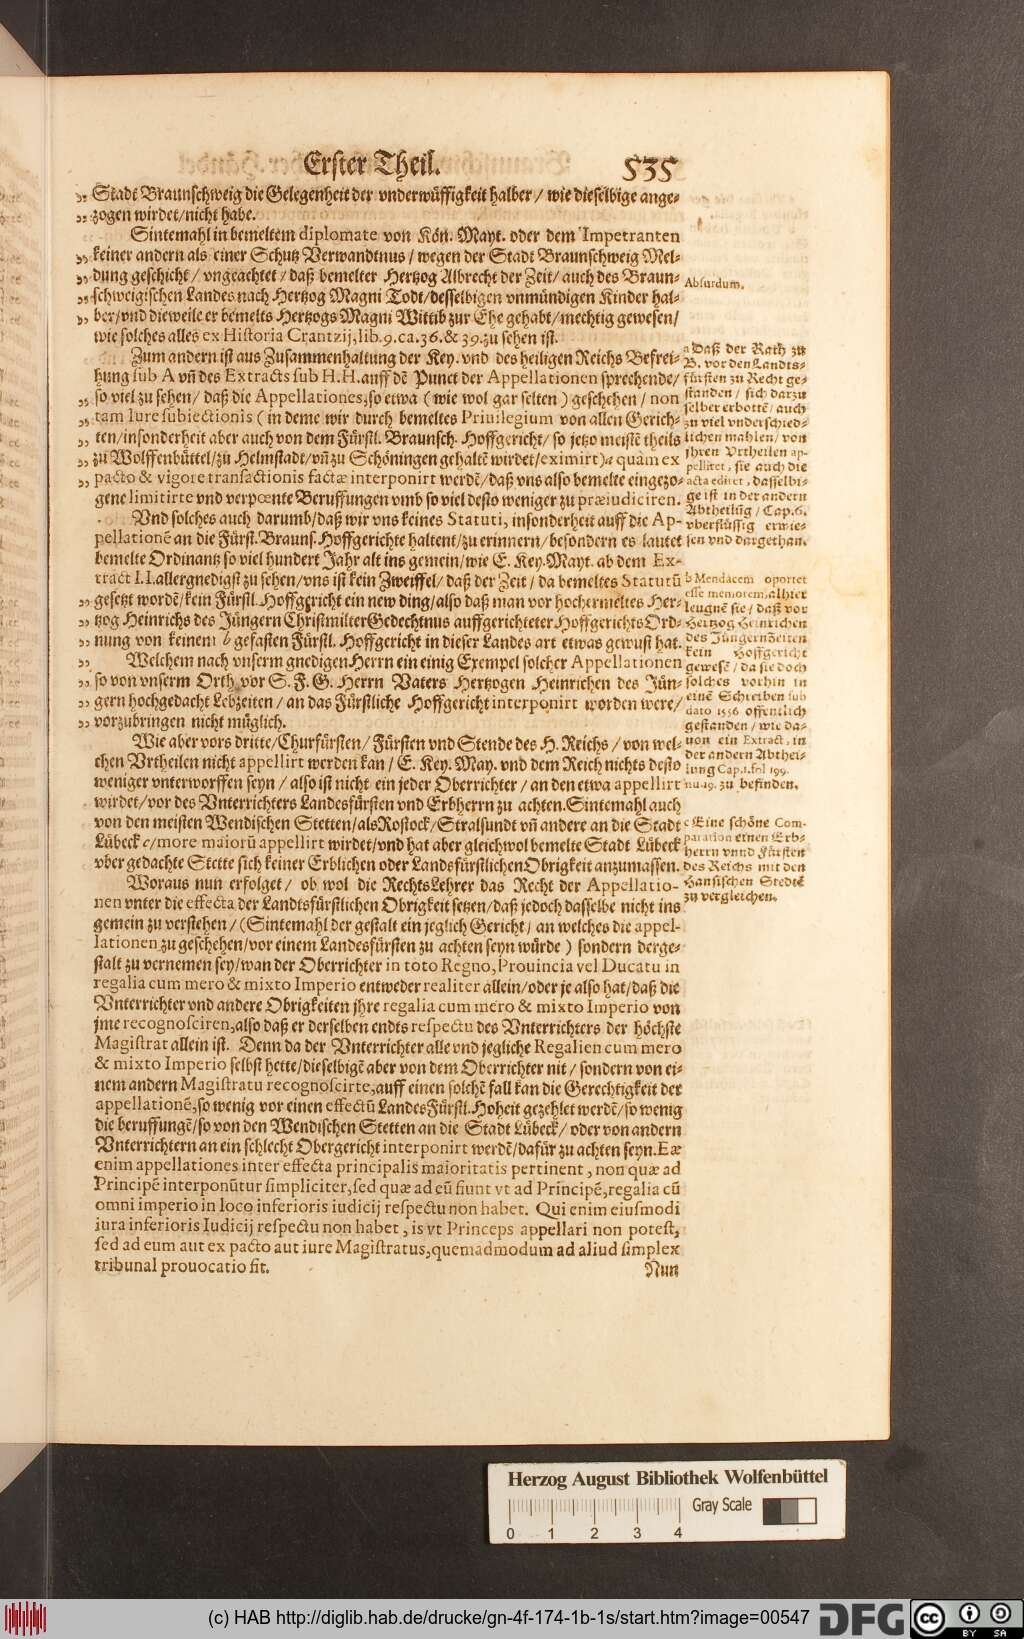 Erster Theil. 535
Stadt Braunschweig die Gelegenheit der vnderwüffigkeit halber / wie dieselbige ange-
zogen wirdet/nicht habe.
Sintemahl in bemeltem diplomate von Kön. Mayt. oder dem Impetranten
keiner andern als einer Schutz Verwandtnus / wegen der Stadt Braunschweig Mel-
dung geschicht / vngeachtet / daß bemelter Hertzog Albrecht der Zeit/ auch des Braun-
schweigischen Landes nach Hertzog Magni Todt/desselbigen vnmündigen Kinder hal-
ber/vnd dieweile er bemelts Hertzogs Magni Wittib zur Ehe gehabt/mechtig gewesen/
wie solches alles ex Historia Crantzij,lib.9.ca.36.& 39.zu sehen ist.
Zum andern ist aus Zusammenhaltung der Key. vnd des heiligen Reichs Befrei-
hung sub A vñ des Extracts sub H.H.auff dẽ Punct der Appellationen sprechende/
so viel zu sehen/ daß die Appellationes,so etwa ( wie wol gar selten ) geschehen / non
tam Iure subiectionis ( in deme wir durch bemeltes Priuilegium von allen Gerich-
ten/insonderheit aber auch von dem Fürstl. Braunsch. Hoffgericht/ so jetzo meistẽ theils
zu Wolffenbüttel/zu Helmstadt/vñ zu Schöningen gehaltẽ wirdet/eximirt)a quàm ex
pacto & vigore transactionis factæ interponirt werdẽ/daß vns also bemelte eingezo-
gene limitirte vnd verpœnte Beruffungen vmb so viel desto weniger zu præiudiciren.
Vnd solches auch darumb/daß wir vns keines Statuti, insonderheit auff die Ap-
pellationẽ an die Fürstl. Brauns. Hoffgerichte haltent/zu erinnern/ besondern es lautet
bemelte Ordinantz so viel hundert Jahr alt ins gemein/wie E. Key. Mayt. ab dem Ex-
tract I.I.allergnedigst zu sehen/vns ist kein Zweiffel/ daß der Zeit / da bemeltes Statutũ
gesetzt wordẽ/kein Fürstl. Hoffgericht ein new ding/also daß man vor hochermeltes Her-
tzog Heinrichs des Jüngern Christmilter Gedechtnus auffgerichteter Hoffgerichts Ord-
nung von keinem b gefasten Fürstl. Hoffgericht in dieser Landes art etwas gewust hat.
Welchem nach vnserm gnedigen Herrn ein einig Exempel solcher Appellationen
so von vnserm Orth vor S. F. G. Herrn Vaters Hertzogen Heinrichen des Jün-
gern hochgedacht Lebzeiten / an das Fürstliche Hoffgericht interponirt worden were/
vorzubringen nicht müglich.
Wie aber vors dritte/Churfürsten/ Fürsten vnd Stende des H. Reichs / von wel-
chen Vrtheilen nicht appellirt werden kan / E. Key. May. vnd dem Reich nichts desto
weniger vnterworffen seyn / also ist nicht ein jeder Oberrichter / an den etwa appellirt
wirdet/vor des Vnterrichters Landesfürsten vnd Erbherrn zu achten.Sintemahl auch
von den meisten Wendischen Stetten/als Rostock/Stralsundt vñ andere an die Stadt
Lübeck c/more maiorũ appellirt wirdet/vnd hat aber gleichwol bemelte Stadt Lübeck
vber gedachte Stette sich keiner Erblichen oder Landsfürstlichen Obrigkeit anzumassen.
Woraus nun erfolget / ob wol die RechtsLehrer das Recht der Appellatio-
nen vnter die effecta der Landtsfürstlichen Obrigkeit setzen/daß jedoch dasselbe nicht ins
gemein zu verstehen / (Sintemahl der gestalt ein jeglich Gericht / an welches die appel-
lationen zu geschehen/vor einem Landesfürsten zu achten seyn würde ) sondern derge-
stalt zu vernemen sey/wan der Oberrichter in toto Regno,Prouincia vel Ducatu in
regalia cum mero & mixto Imperio entweder realiter allein/oder je also hat/daß die
Vnterrichter vnd andere Obrigkeiten jhre regalia cum mero & mixto Imperio von
jme recognosciren,also daß er derselben endts respectu des Vnterrichters der höchste
Magistrat allein ist. Denn da der Vnterrichter alle vnd jegliche Regalien cum mero
& mixto Imperio selbst hette/dieselbigẽ aber von dem Oberrichter nit / sondern von ei-
nem andern Magistratu recognoscirte,auff einen solchẽ fall kan die Gerechtigkeit der
appellationẽ,so wenig vor einen effectũ LandesFürstl. Hoheit gezehlet werdẽ/so wenig
die beruffungẽ/so von den Wendischen Stetten an die Stadt Lübeck/ oder von andern
Vnterrichtern an ein schlecht Obergericht interponirt werdẽ/dafür zu achten seyn.Eæ
enim appellationes inter effecta principalis maioritatis pertinent, non quæ ad
Principẽ interponũtur simpliciter,sed quæ ad eũ fiunt vt ad Principẽ,regalia cũ
omni imperio in loco inferioris iudicij respectu non habet. Qui enim eiusmodi
iura inferioris Iudicij respectu non habet, is vt Princeps appellari non potest,
sed ad eum aut ex pacto aut iure Magistratus,quemadmodum ad aliud simplex
tribunal prouocatio fit.
Nun
Absurdum.
a Daß der Rath zu
B. vor den Landts-
fürsten zu Recht ge-
standen / sich darzu
selber erbottẽ / auch
zu viel vnderschied-
lichen mahlen / von
jhren Vrtheilen ap-
pelliret, sie auch die
acta ediret, dasselbi-
ge ist in der andern
Abtheilũg / Cap.6.
vberflüssig erwie-
sen vnd dargethan.
b Mendacem oportet
esse memorem, alhier
leugnẽ sie / daß vor
Hertzog Heinrichen
des Jüngern Zeiten
kein Hoffgericht
gewesẽ / da sie doch
solches vorhin in
einẽ Schreiben sub
dato 1556 offentlich
gestanden / wie da-
uon ein Extract, in
der andern Abthei-
lung Cap.1.fol 199.
nu.19. zu befinden.
c Eine schöne Com-
paration einen Erb-
herrn vnnd Fürsten
des Reichs mit den
Hansischen Stedtẽ
zu vergleichen.
Herzog August Bibliothek Wolfenbüttel
0 1 2 3 4
Gray Scale
(c) HAB http://diglib.hab.de/drucke/gn-4f-174-1b-1s/start.htm?image=00547
DFG
cc BY SA